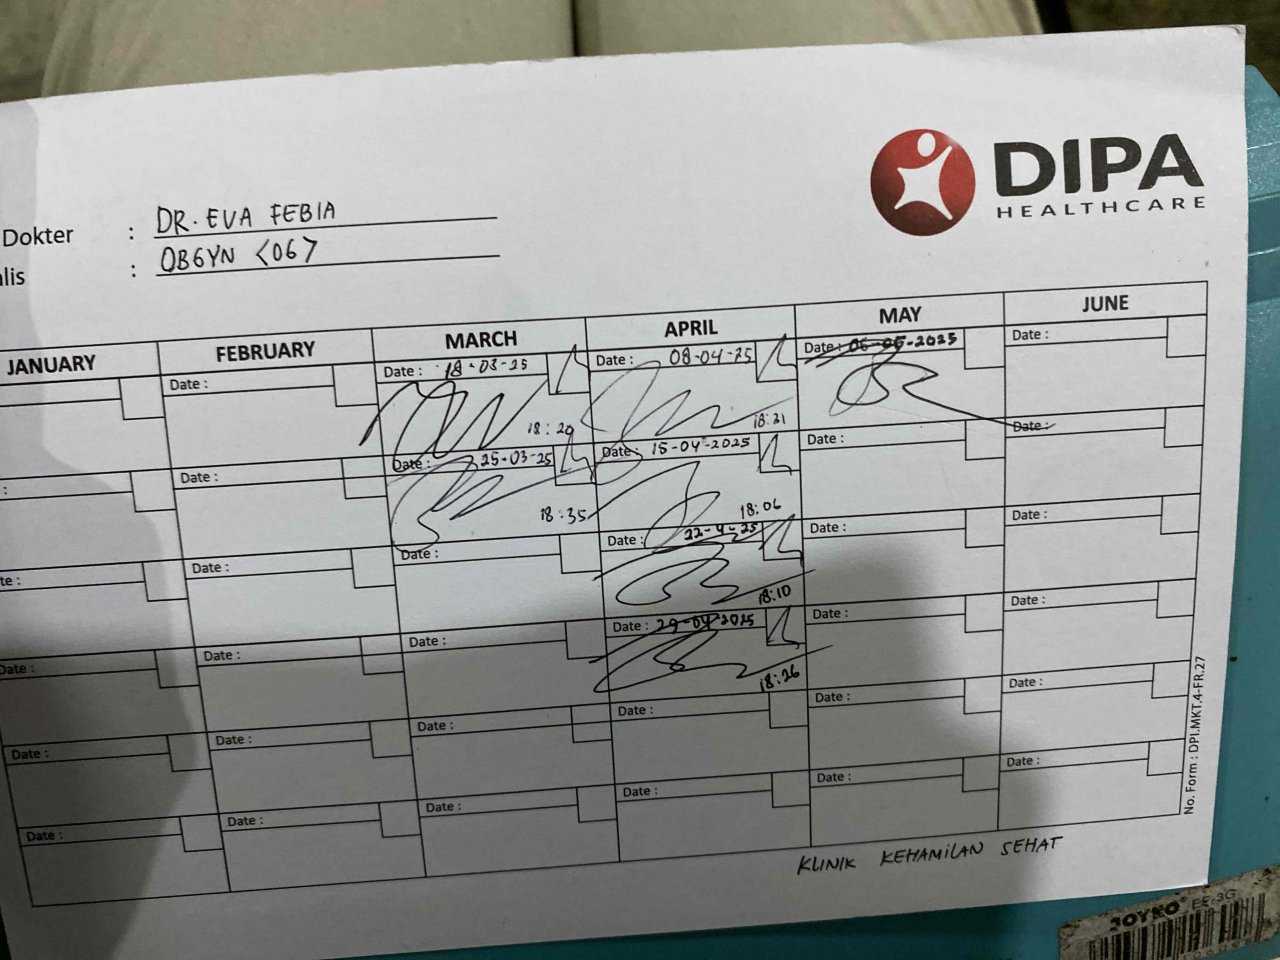 DIPA
HEALTHCARE
Dokter : DR. EVA FEBIA
alis : OBGYN <06>
JANUARY FEBRUARY MARCH APRIL MAY JUNE
Date : Date : 18-03-25 Date : 08-04-25 Date : 06-05-2025 Date :
18:20 18:21
: Date : Date : 25-03-25 Date : 15-04-2025 Date : Date :
18:35 18:06
te : Date : Date : Date : 22-4-25 Date : Date :
18:10
Date : Date : Date : Date : 29-04-2025 Date :
18:26
Date : Date : Date : Date : Date : Date :
Date : Date : Date : Date : Date : Date :
No. Form : DPI.MKT.4-FR.27
KLINIK KEHAMILAN SEHAT
JOYKO EE-3G